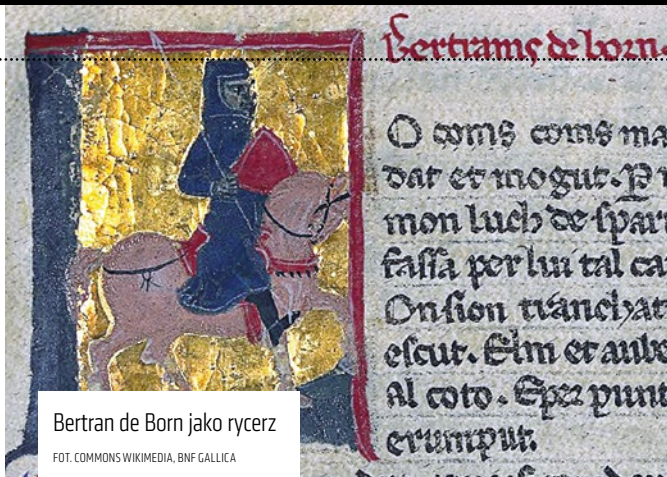 Bertrams de born.
O coms coms ma
dat et mogut. P
mon luch de spar
fassa per lui tal ca
On sion tranchat
escut. Elm et aube
Al coto. E per punt
erumput
Bertran de Born jako rycerz
FOT. COMMONS WIKIMEDIA, BNF GALLICA